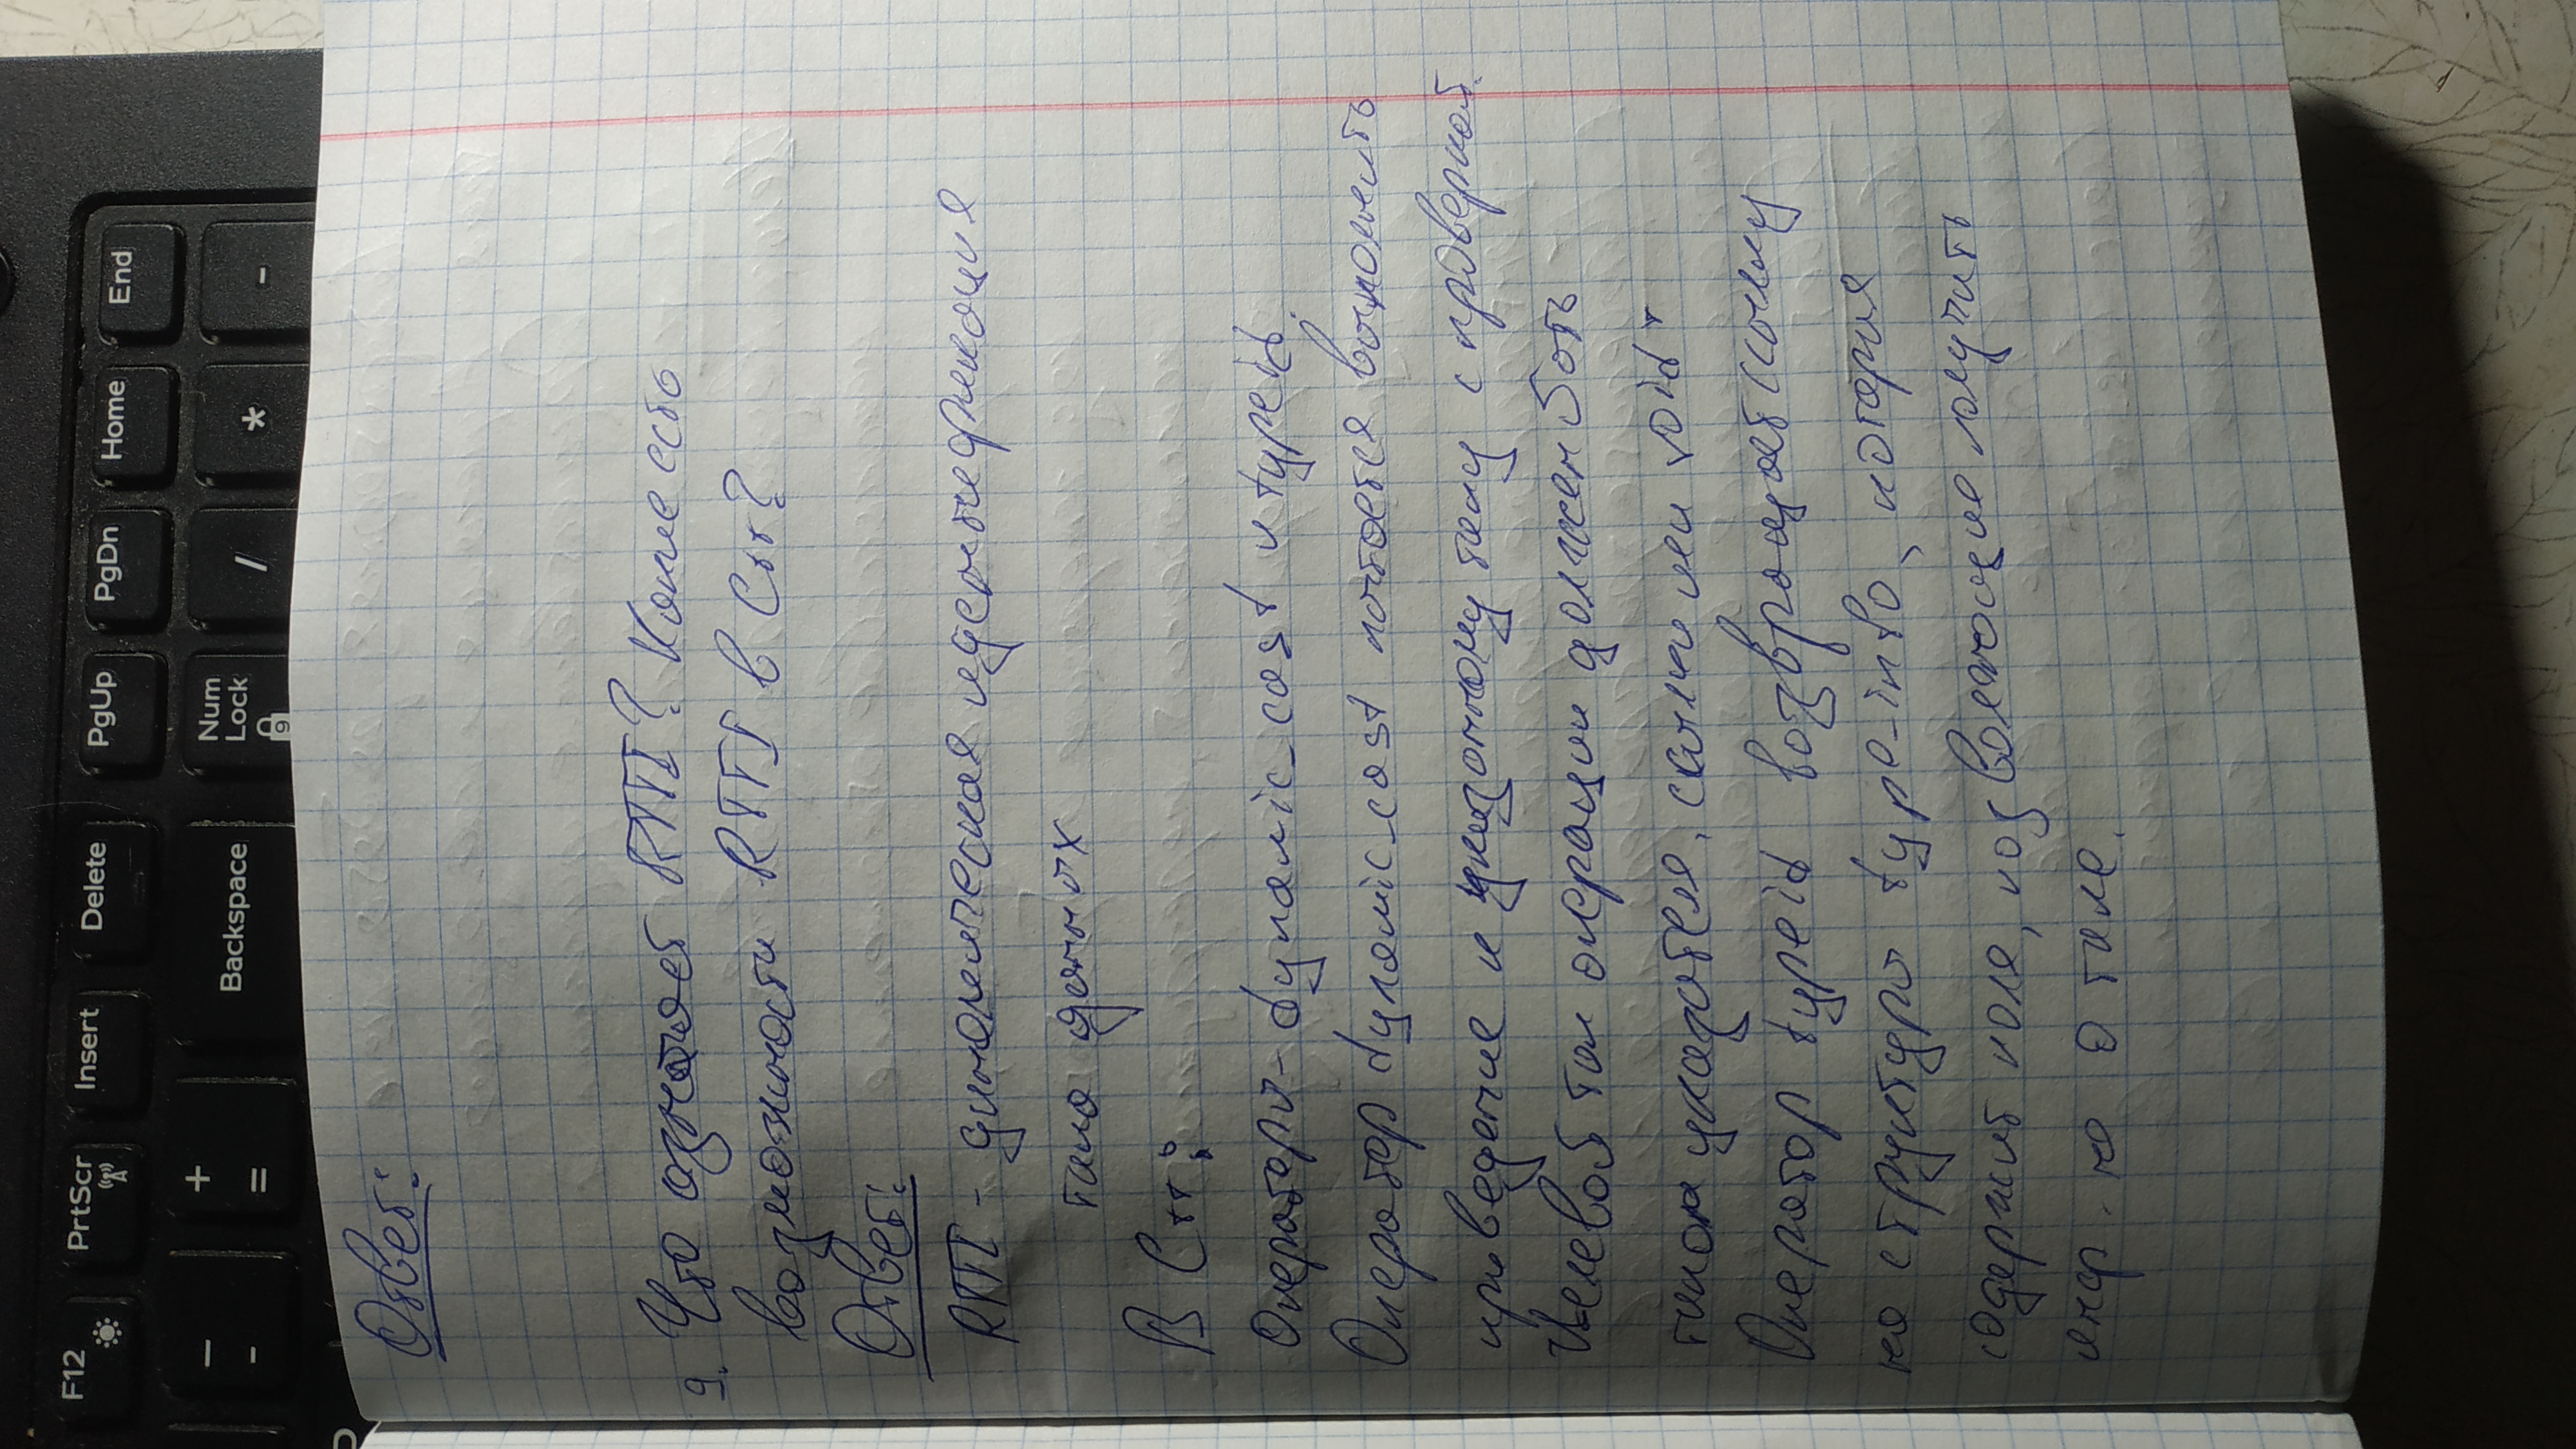 F12 PrtScr Insert Delete PgUp PgDn Home End
— + Num
- = Backspace Lock / * -
9
Ответ:
9. Что означает RTTI? Какие есть
возможности RTTI в C++?
Ответ:
RTTI - динамическая идентификация
типа данных
В C++:
Операторы - dynamic_cast и typeid.
Оператор dynamic_cast пытается выполнить
приведение к указанному типу с проверкой.
Целевой тип операции должен быть
типом указателя, ссылки или void*
Оператор typeid возвращает ссылку
на структуру type_info, которая
содержит поля, позволяющие получить
инф-ю о типе.